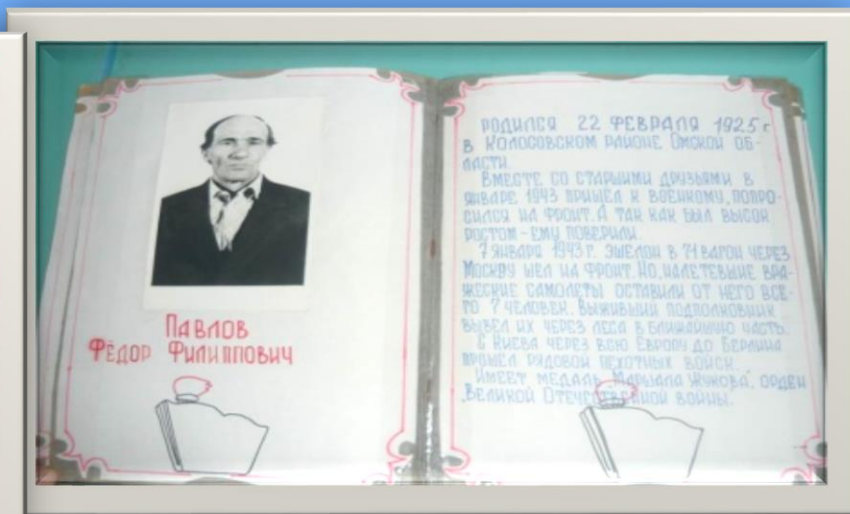 ПАВЛОВ
ФЁДОР ФИЛИППОВИЧ
РОДИЛСЯ 22 ФЕВРАЛЯ 1925 г
В КОЛОСОВСКОМ РАЙОНЕ ОМСКОЙ ОБ-
ЛАСТИ.
ВМЕСТЕ СО СТАРШИМИ ДРУЗЬЯМИ В
ЯНВАРЕ 1943 ПРИШЁЛ К ВОЕНКОМУ, ПОПРО-
СИЛСЯ НА ФРОНТ. А ТАК КАК БЫЛ ВЫСОК
РОСТОМ - ЕМУ ПОВЕРИЛИ.
7 ЯНВАРЯ 1943 Г. ЭШЕЛОН В 71 ВАГОН ЧЕРЕЗ
МОСКВУ ШЕЛ НА ФРОНТ. НО, НАЛЕТЕВШИЕ ВРА-
ЖЕСКИЕ САМОЛЕТЫ ОСТАВИЛИ ОТ НЕГО ВСЕ-
ГО 7 ЧЕЛОВЕК. ВЫЖИВШИЙ ПОДПОЛКОВНИК
ВЫВЕЛ ИХ ЧЕРЕЗ ЛЕСА В БЛИЖАЙШУЮ ЧАСТЬ.
С КИЕВА ЧЕРЕЗ ВСЮ ЕВРОПУ ДО БЕРЛИНА
ПРОШЕЛ РЯДОВОЙ ПЕХОТНЫХ ВОЙСК.
ИМЕЕТ МЕДАЛЬ „МАРШАЛА ЖУКОВА", ОРДЕН
„ВЕЛИКОЙ ОТЕЧЕСТВЕННОЙ ВОЙНЫ.